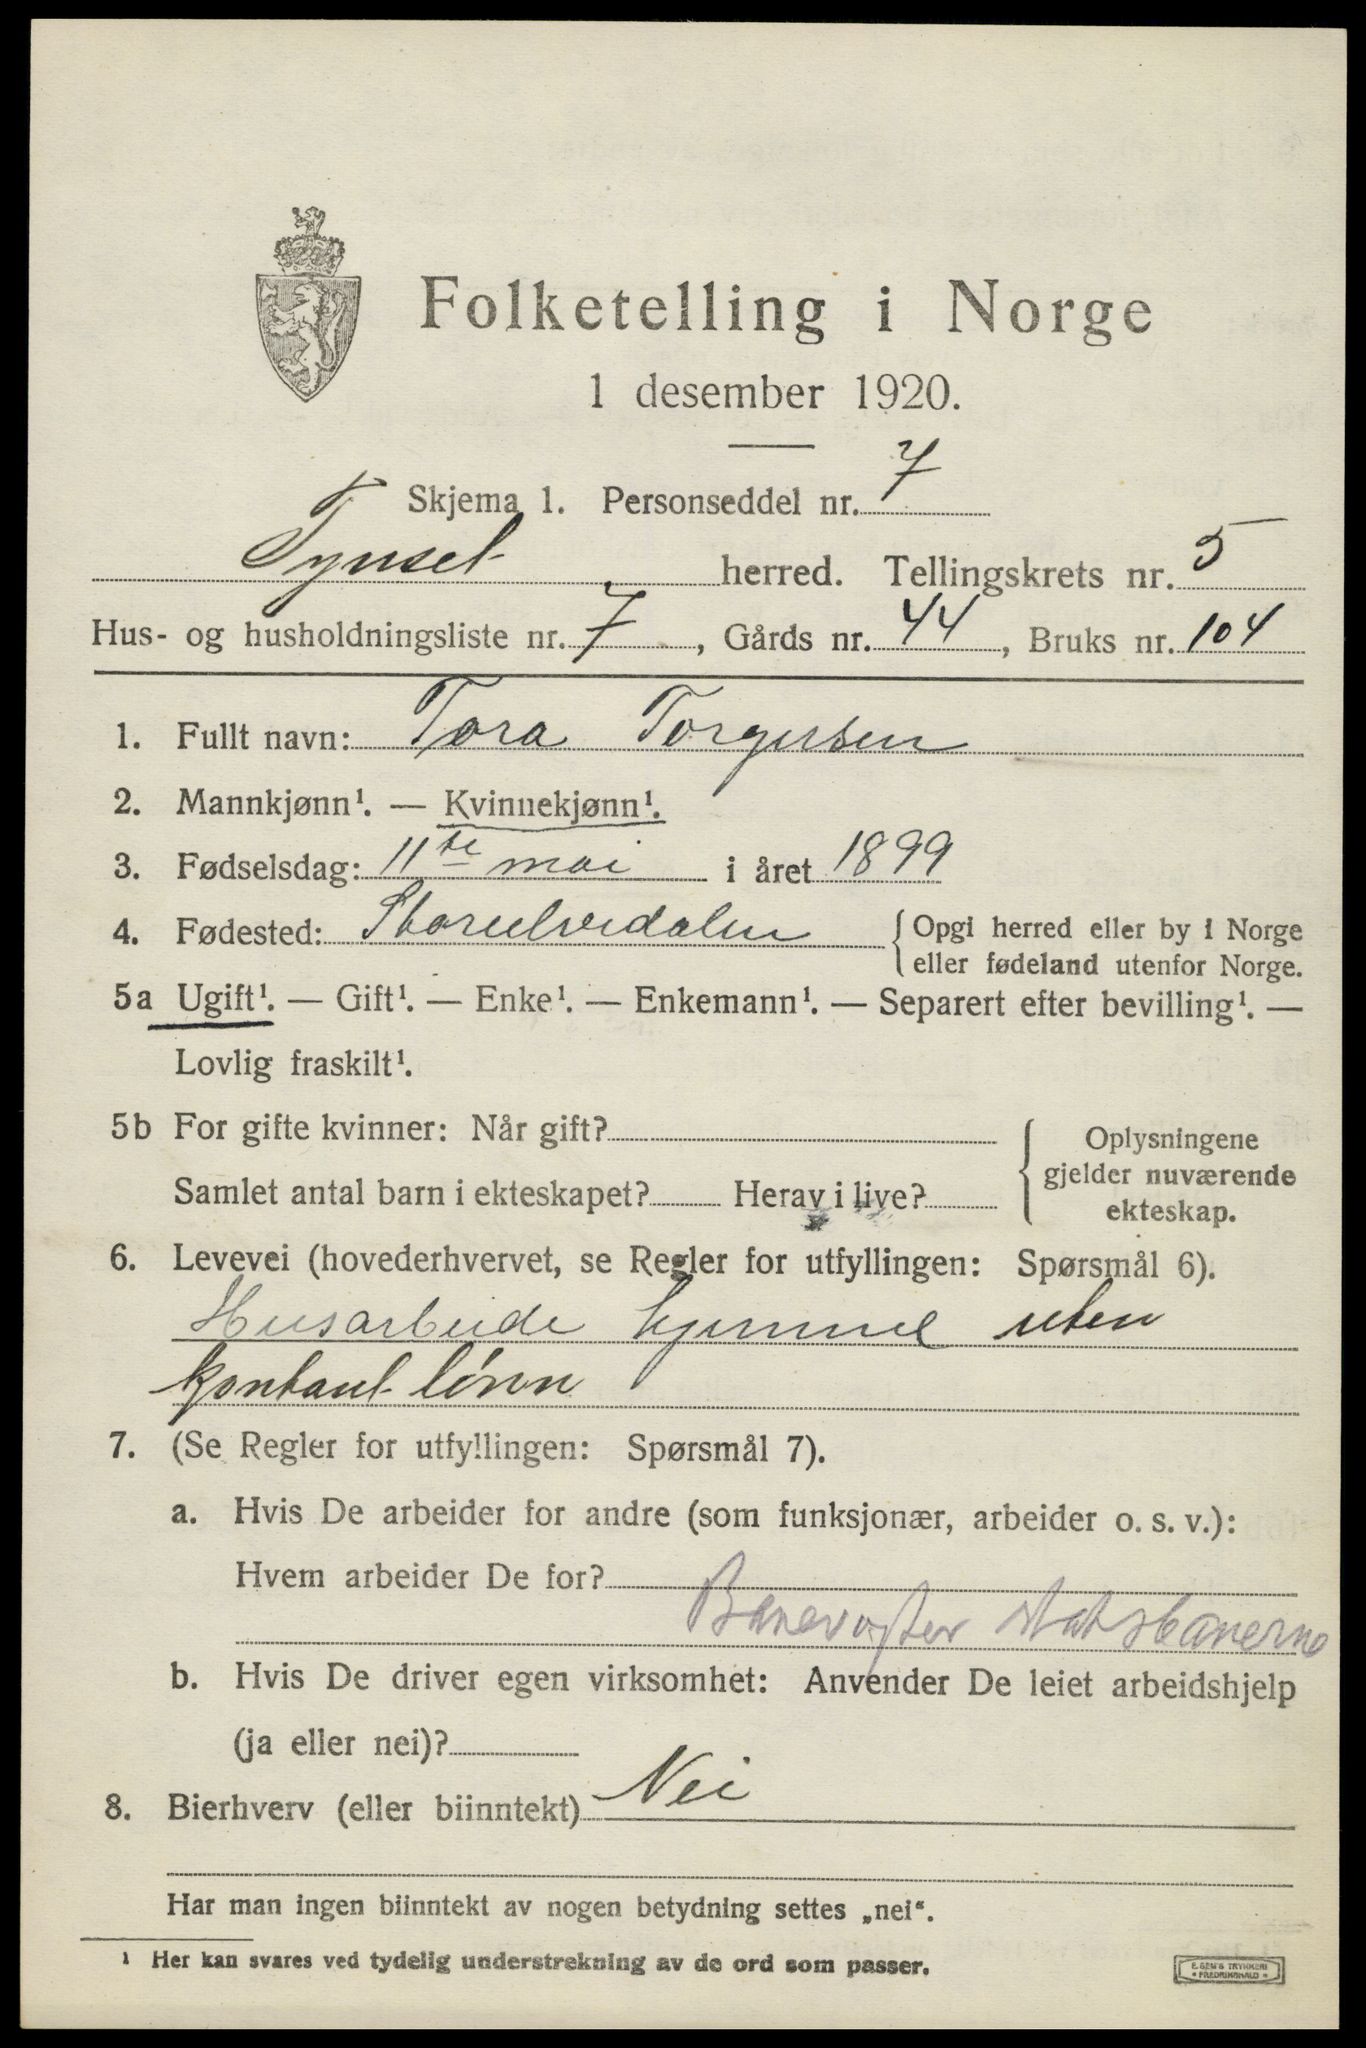 Folketelling i Norge
1 desember 1920.
Skjema 1. Personseddel nr. 7
Tynset herred. Tellingskrets nr. 5
Hus- og husholdningsliste nr. 7, Gårds nr. 44, Bruks nr. 104
1. Fullt navn: Tora Torgersen
2. Mannkjønn¹. — Kvinnekjønn¹.
3. Fødselsdag: 11te mai i året 1899
4. Fødested: Storelvedalen { Opgi herred eller by i Norge
eller fødeland utenfor Norge.
5a Ugift¹. — Gift¹. — Enke¹. — Enkemann¹. — Separert efter bevilling¹. —
Lovlig fraskilt¹.
5b For gifte kvinner: Når gift?
Samlet antal barn i ekteskapet? Herav i live?
{ Oplysningene
gjelder nuværende
ekteskap.
6. Levevei (hovederhvervet, se Regler for utfyllingen: Spørsmål 6).
Husarbeide hjemme uten
kontant lønn
7. (Se Regler for utfyllingen: Spørsmål 7).
a. Hvis De arbeider for andre (som funksjonær, arbeider o. s. v.):
Hvem arbeider De for?
Banevogter statsbanerne
b. Hvis De driver egen virksomhet: Anvender De leiet arbeidshjelp
(ja eller nei)?
8. Bierhverv (eller biinntekt) Nei
Har man ingen biinntekt av nogen betydning settes „nei“.
¹ Her kan svares ved tydelig understrekning av de ord som passer.
E. SEM'S TRYKKERI
FREDRIKSHALD